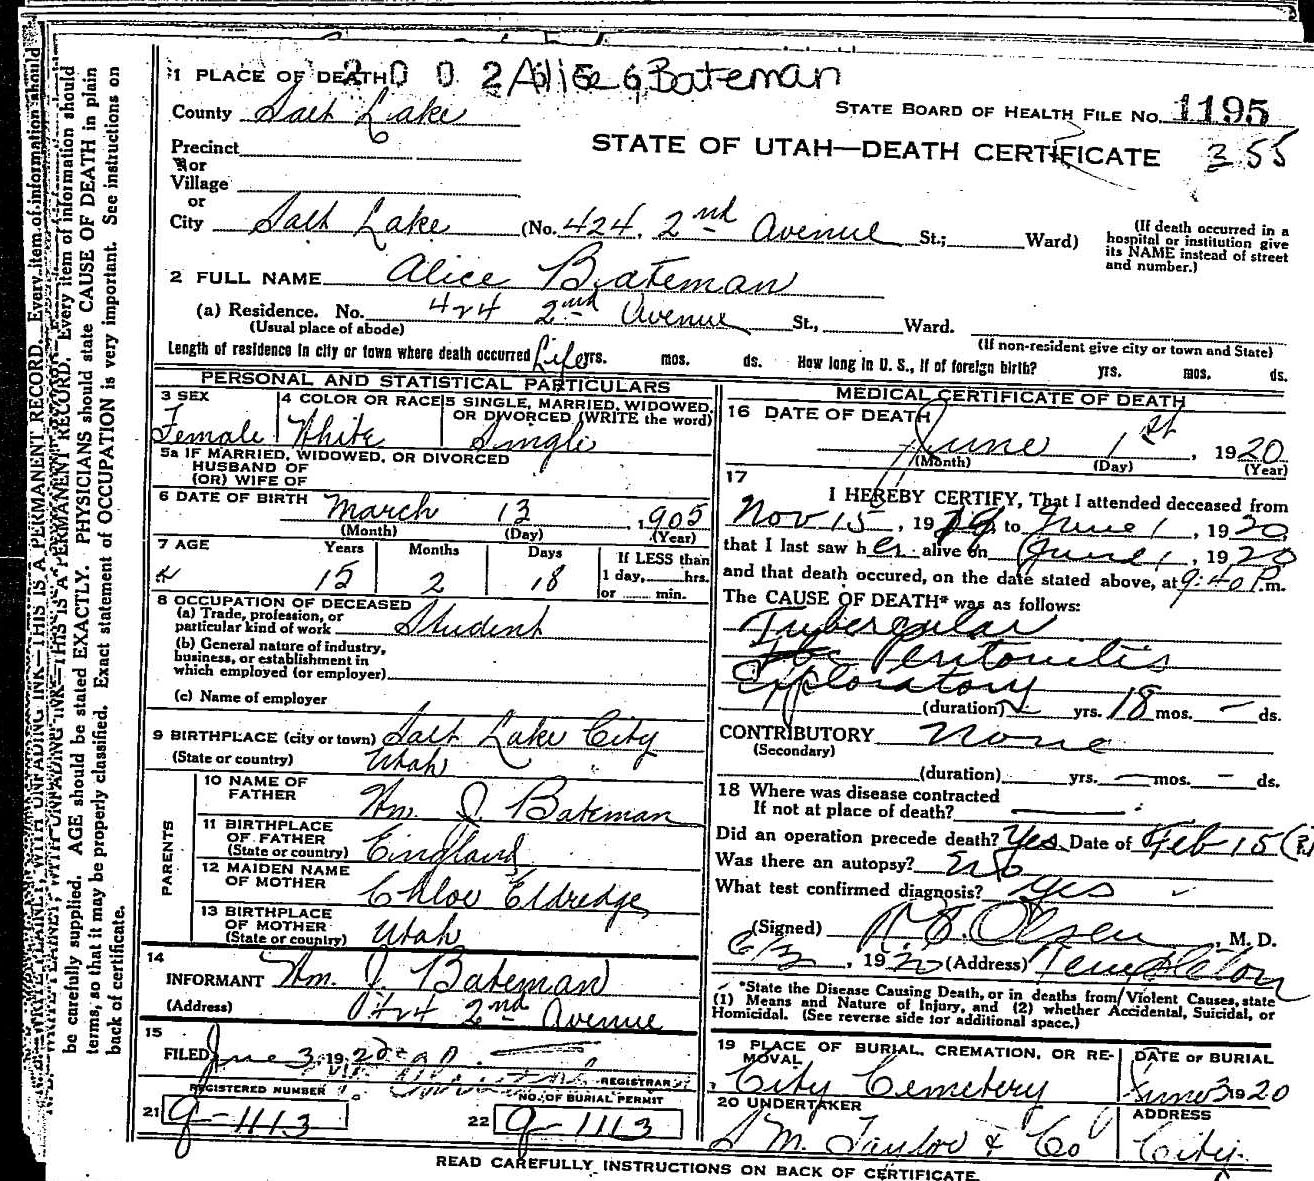 1 PLACE OF DEATH 2 0 0 2 Alice G Bateman
County Salt Lake
STATE BOARD OF HEALTH FILE NO. 1195
Precinct
or
STATE OF UTAH—DEATH CERTIFICATE 355
Village
or
City Salt Lake (No. 424. 2nd Avenue St.; Ward)
(If death occurred in a
hospital or institution give
its NAME instead of street
and number.)
2 FULL NAME Alice Bateman
(a) Residence. No. 424 2nd Avenue St., Ward.
(Usual place of abode)
(If non-resident give city or town and State)
Length of residence in city or town where death occurred Life yrs. mos. ds. How long in U. S., if of foreign birth? yrs. mos. ds.
PERSONAL AND STATISTICAL PARTICULARS
3 SEX
Female
4 COLOR OR RACE
White
5 SINGLE, MARRIED, WIDOWED,
OR DIVORCED (WRITE the word)
Single
5a IF MARRIED, WIDOWED, OR DIVORCED
HUSBAND OF
(OR) WIFE OF
6 DATE OF BIRTH March 13, 1905
(Month) (Day) (Year)
7 AGE Years Months Days
If LESS than
1 day, hrs.
or min.
15 2 18
8 OCCUPATION OF DECEASED
(a) Trade, profession, or
particular kind of work Student
(b) General nature of industry,
business, or establishment in
which employed (or employer)
(c) Name of employer
9 BIRTHPLACE (city or town) Salt Lake City
(State or country) Utah
PARENTS
10 NAME OF
FATHER Wm. J. Bateman
11 BIRTHPLACE
OF FATHER
(State or country) England
12 MAIDEN NAME
OF MOTHER Chloe Eldredge
13 BIRTHPLACE
OF MOTHER
(State or country) Utah
14
INFORMANT Wm. J. Bateman
(Address) 424 2nd Avenue
15
FILED June 3, 1920
REGISTRAR
REGISTERED NUMBER
21 9-1113
NO. OF BURIAL PERMIT
22 9-1113
MEDICAL CERTIFICATE OF DEATH
16 DATE OF DEATH
June 1st, 1920
(Month) (Day) (Year)
17
I HEREBY CERTIFY, That I attended deceased from
Nov 15, 1919 to June 1, 1920
that I last saw her alive on June 1, 1920
and that death occured, on the date stated above, at 9:40 P.m.
The CAUSE OF DEATH* was as follows:
Tubercular
Peritonitis
Exploratory
(duration) yrs. 18 mos. — ds.
CONTRIBUTORY None
(Secondary)
(duration) yrs. — mos. — ds.
18 Where was disease contracted
If not at place of death?
Did an operation precede death? Yes Date of Feb 15
Was there an autopsy? No
What test confirmed diagnosis? yes
(Signed) Olsen, M. D.
6/3, 1920 (Address) Templeton
*State the Disease Causing Death, or in deaths from Violent Causes, state
(1) Means and Nature of Injury, and (2) whether Accidental, Suicidal, or
Homicidal. (See reverse side for additional space.)
19 PLACE OF BURIAL, CREMATION, OR RE-
MOVAL
City Cemetery
DATE OF BURIAL
June 3 1920
20 UNDERTAKER
S M. Taylor & Co
ADDRESS
City.
READ CAREFULLY INSTRUCTIONS ON BACK OF CERTIFICATE.
be carefully supplied. AGE should be stated EXACTLY. PHYSICIANS should state CAUSE OF DEATH in plain
terms, so that it may be properly classified. Exact statement of OCCUPATION is very important. See instructions on
back of certificate.